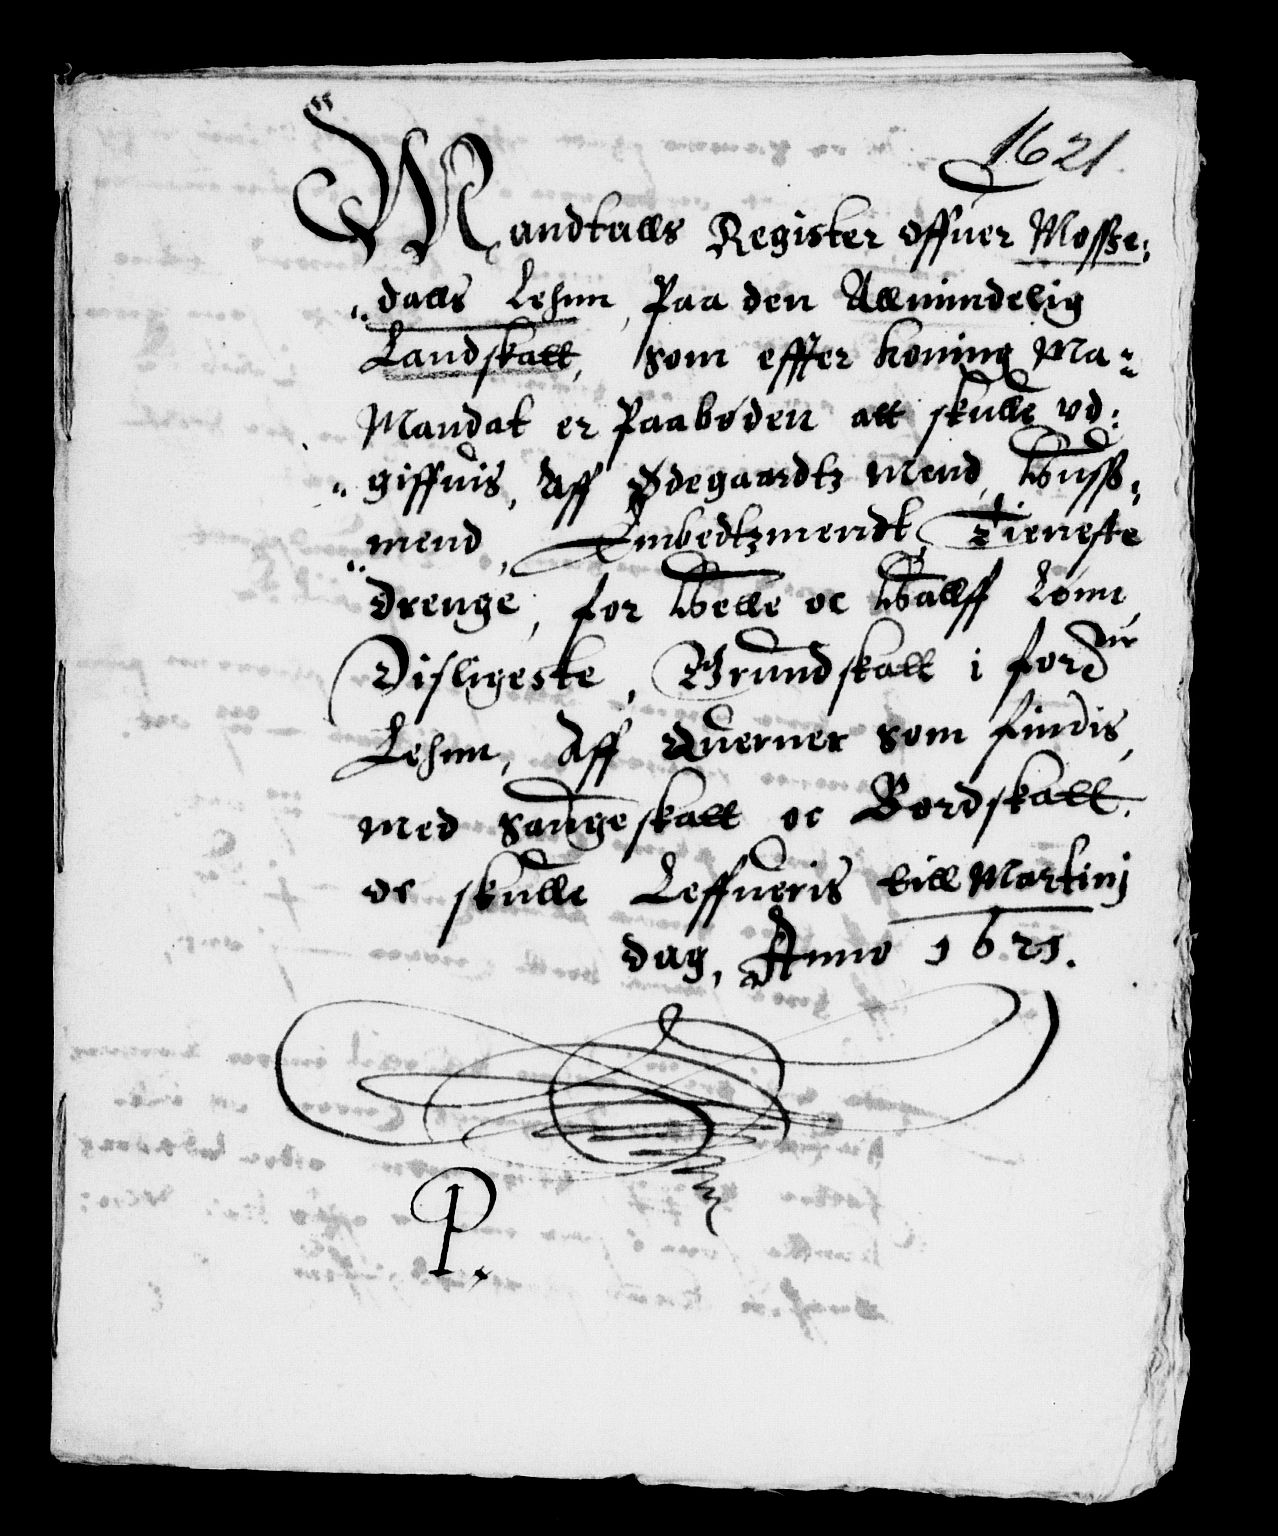 1621.
Mandtalls Register offuer Mosse,
dalls Lehnn, Paa den Allmindelig
Landskatt, som effter koning Ma=
Mandat er Paaboden att skulle vd,
giffuis, Aff Ødegaardtz mend, Huss,
mend, Embedtzmendt, Tieneste
drenge, for Helle oc Hallff Lønn,
Disligeste, Grundskatt i fordnr
Lehnn, Aff Querner som findis,
med Saugeskatt oc Bordskatt.
oc skulle Leffueris till Martinj
dag, Anno 1621.
P.